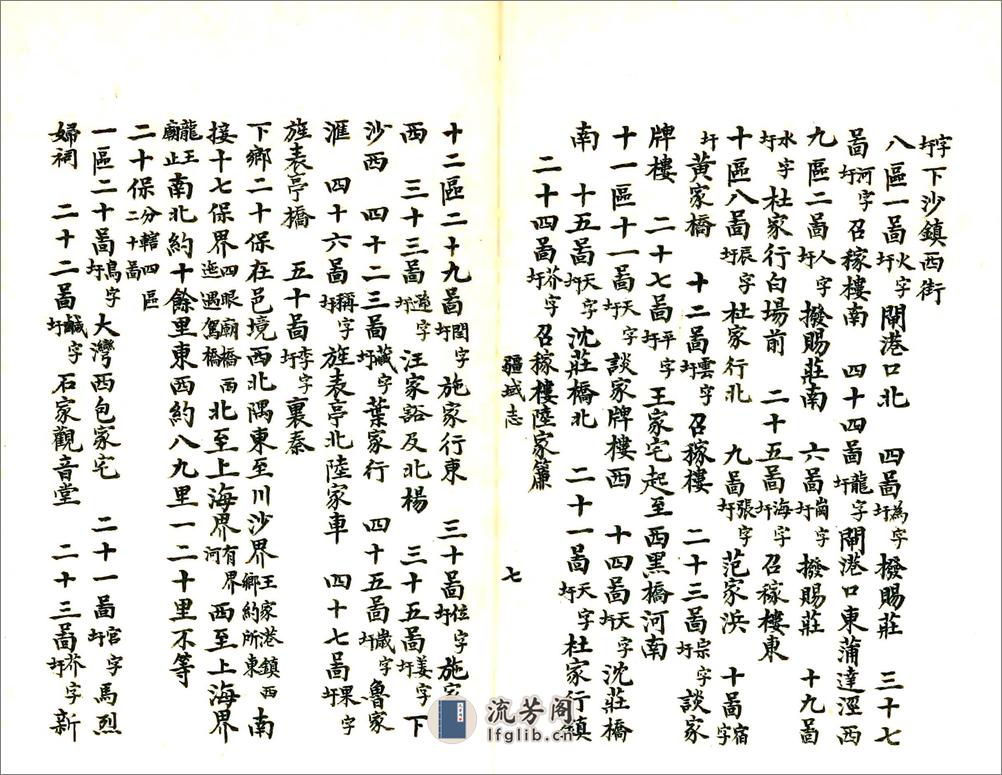 字圩下沙鎮西街
八區一啚火字圩閘港口北　四啚為字圩撥賜莊　三十七
啚河字圩召稼樓南　四十四啚龍字圩閘港口東蒲達涇西
九區二啚人字圩撥賜莊南　六啚崗字圩撥賜莊　十九啚
水字圩杜家行白場前　二十五啚海字圩召稼樓東
十區八啚辰字圩杜家行北　九啚張字圩范家浜　十啚宿字
圩黃家橋　十二啚雲字圩召稼樓　二十三啚宗字圩談家
牌樓　二十七啚平字圩王家宅起至西黑橋河南
十一區十一啚天字圩談家牌樓西　十四啚天字圩沈莊橋
南　十五啚天字圩沈莊橋北　二十一啚天字圩杜家行鎮
二十四啚芥字圩召稼樓陸家簾
疆域志　七
十二區二十九啚閏字圩施家行東　三十啚位字圩施家
西　三十三啚遜字圩汪家谽及北楊　三十五啚姜字圩下
沙西　四十二三啚藏字圩葉家行　四十五啚歲字圩魯家
滙　四十六啚稱字圩旌表亭北陸家車　四十七啚果字圩
旌表亭橋　五十啚李字圩裏秦
下鄉二十保在邑境西北隅東至川沙界王家港鎮西鄉約所東南
接十七保界四眼廟橋西迤遇駕橋北至上海界有界河西至上海界
龍王廟止南北約十餘里東西約八九里一二十里不等
二十保分轄四區二十啚
一區二十啚鳥字圩大灣西包家宅　二十一啚官字圩馬烈
婦祠　二十二啚鹹字圩石家觀音堂　二十三啚芥字圩新
流芳阁
lfglib.cn